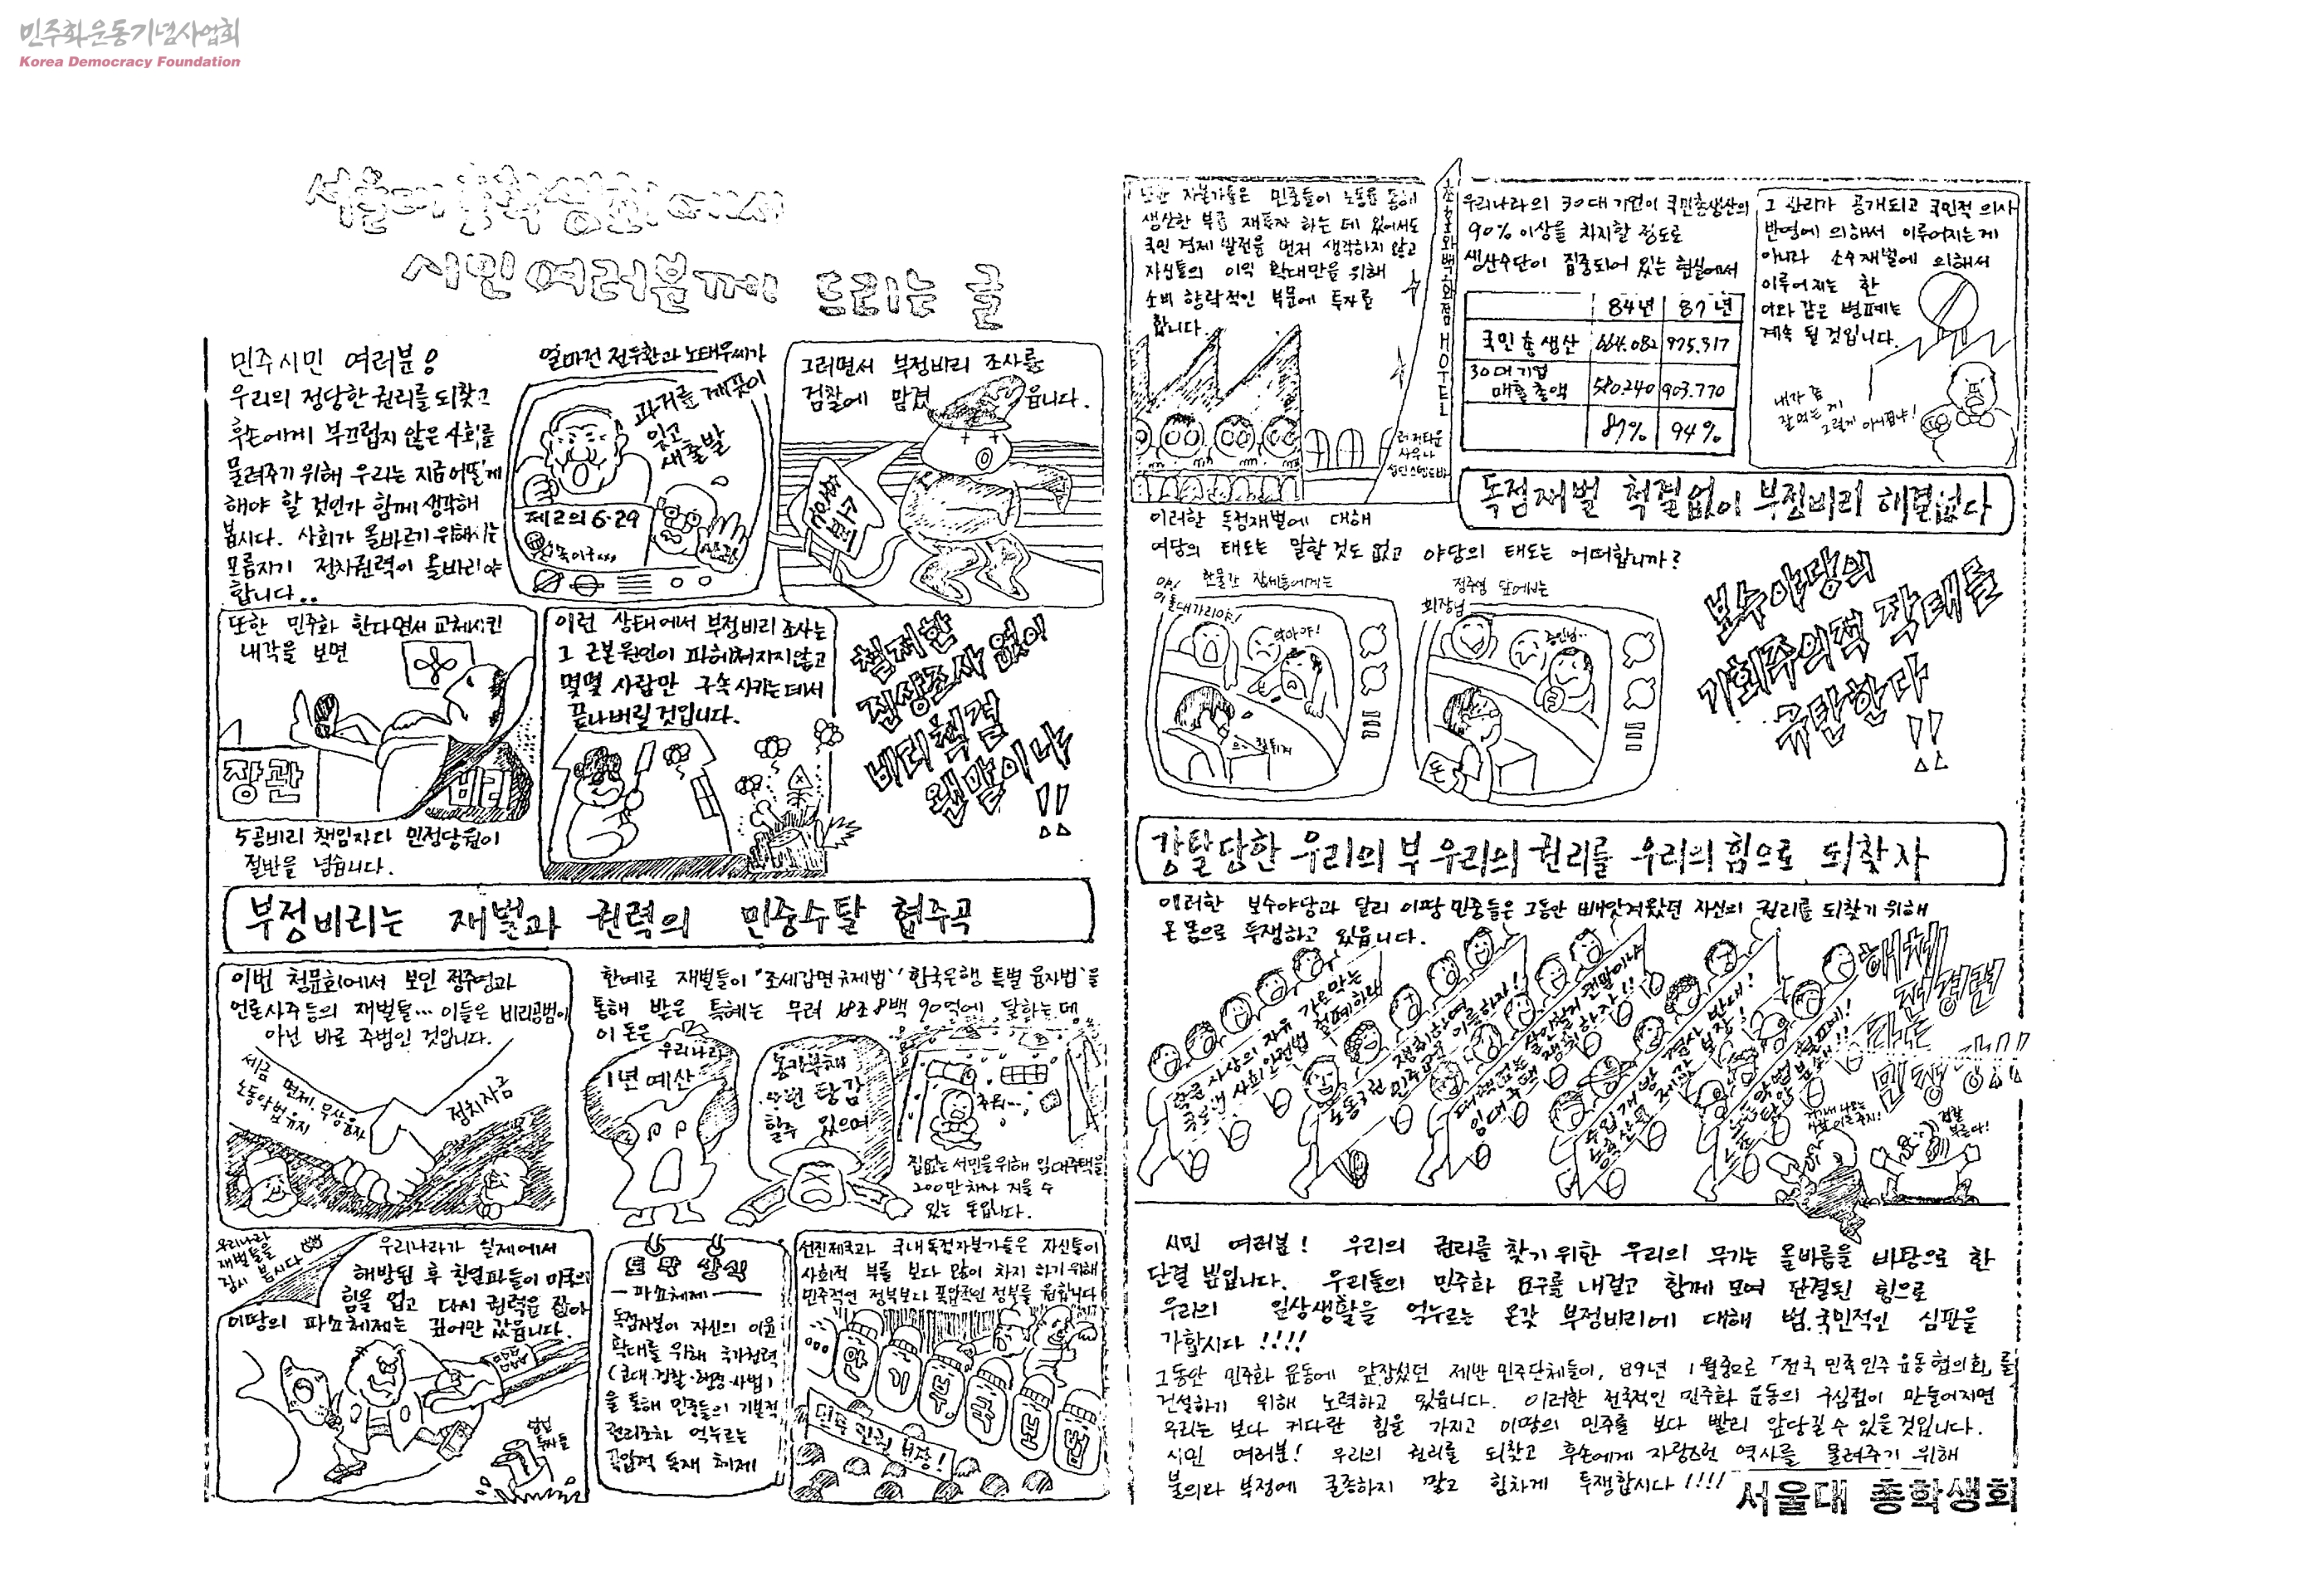 민주화운동기념사업회
Korea Democracy Foundation
서울대 총학생회에서
시민 여러분께 드리는 글
민주시민 여러분!
우리의 정당한 권리를 되찾고
후손에게 부끄럽지 않은 사회를
물려주기 위해 우리는 지금 어떻게
해야 할 것인가 함께 생각해
봅시다. 사회가 올바르기 위해서는
모름지기 정치권력이 올바라야
합니다..
얼마전 전두환과 노태우씨가
과거를 깨끗이
잊고
새출발
제2의 6·29
그러면서 부정비리 조사를
검찰에 맡겼읍니다.
또한 민주화 한다면서 교체시킨
내각을 보면
장관
비리
5공비리 책임자나 민정당원이
절반을 넘습니다.
이런 상태에서 부정비리 조사는
그 근본원인이 파헤쳐지지않고
몇몇 사람만 구속시키는데서
끝나버릴 것입니다.
철저한
진상조사 없이
비리척결
웬말이냐
!!
부정비리는 재벌과 권력의 민중수탈 협주곡
이번 청문회에서 보인 정주영과
언론사주등의 재벌들… 이들은 비리공범이
아닌 바로 주범인 것입니다.
세금 면제. 무상융자
노동악법유지
정치자금
한예로 재벌들이 '조세감면규제법' '한국은행 특별융자법'을
통해 받은 특혜는 무려 18조 8백 90억에 달하는데
이 돈은
우리나라
1년 예산
농가부채
탕감
할수 있으며
집없는 서민을위해 임대주택을
200만채나 지을 수
있는 돈입니다.
우리나라
재벌들을
잠시 봅시다
우리나라가 실제에서
해방된 후 친일파들이 미국의
힘을 업고 다시 권력을 잡아
이땅의 파쇼체제는 깊어만 갔읍니다.
상식
－파쇼체제－
독점자본이 자신의 이윤
확대를 위해 국가권력
(군대·경찰·행정·사법)
을 통해 민중들의 기본적
권리조차 억누르는
폭압적 독재 체제
선진제국과 국내독점자본가들은 자신들이
사회적 부를 보다 많이 차지 하기위해
민주적인 정부보다 폭압적인 정부를 원합니다
안기부
국보법
민중 민권 보장!
또한 자본가들은 민중들이 노동을 통해
생산한 부를 재투자 하는 데 있어서도
국민 경제 발전을 먼저 생각하지 않고
자신들의 이익 확대만을 위해
소비 향락적인 부문에 투자를
합니다.
초호화백화점 HOTEL
우리나라의 30대 기업이 국민총생산의
90%이상을 차지할 정도로
생산수단이 집중되어 있는 현실에서
84년 87년
국민총생산 664.082 975.517
30대기업
매출총액 580.240 903.770
87% 94%
그 관리가 공개되고 국민적 의사
반영에 의해서 이루어지는게
아니라 소수재벌에 의해서
이루어지는 한
이와 같은 병폐는
계속 될 것입니다.
독점재벌 척결없이 부정비리 해결없다
이러한 독점재벌에 대해
여당의 태도는 말할것도 없고 야당의 태도는 어떠합니까?
한물간 장세동에게는
야!
이 돌대가리야!
정주영 앞에서는
회장님
돈
보수야당의
기회주의적 작태를
규탄한다
!!
강탈당한 우리의 부 우리의 권리를 우리의 힘으로 되찾자
이러한 보수야당과 달리 이땅 민중들은 그동안 빼앗겨왔던 자신의 권리를 되찾기 위해
온 몸으로 투쟁하고 있읍니다.
노동3권 쟁취하여
임대주택 쟁취하자!!
수입개방 결사 반대!
시민 여러분! 우리의 권리를 찾기위한 우리의 무기는 올바름을 바탕으로 한
단결 뿐입니다. 우리들의 민주화 요구를 내걸고 함께 모여 단결된 힘으로
우리의 일상생활을 억누르는 온갖 부정비리에 대해 범.국민적인 심판을
가합시다 !!!!
그동안 민주화 운동에 앞장섰던 제반 민주단체들이, 89년 1월중으로 「전국 민족민주운동협의회」를
건설하기 위해 노력하고 있읍니다. 이러한 전국적인 민주화 운동의 구심점이 만들어지면
우리는 보다 커다란 힘을 가지고 이땅의 민주를 보다 빨리 앞당길 수 있을것입니다.
시민 여러분! 우리의 권리를 되찾고 후손에게 자랑스런 역사를 물려주기 위해
불의와 부정에 굴종하지 말고 힘차게 투쟁합시다 !!!!
서울대 총학생회